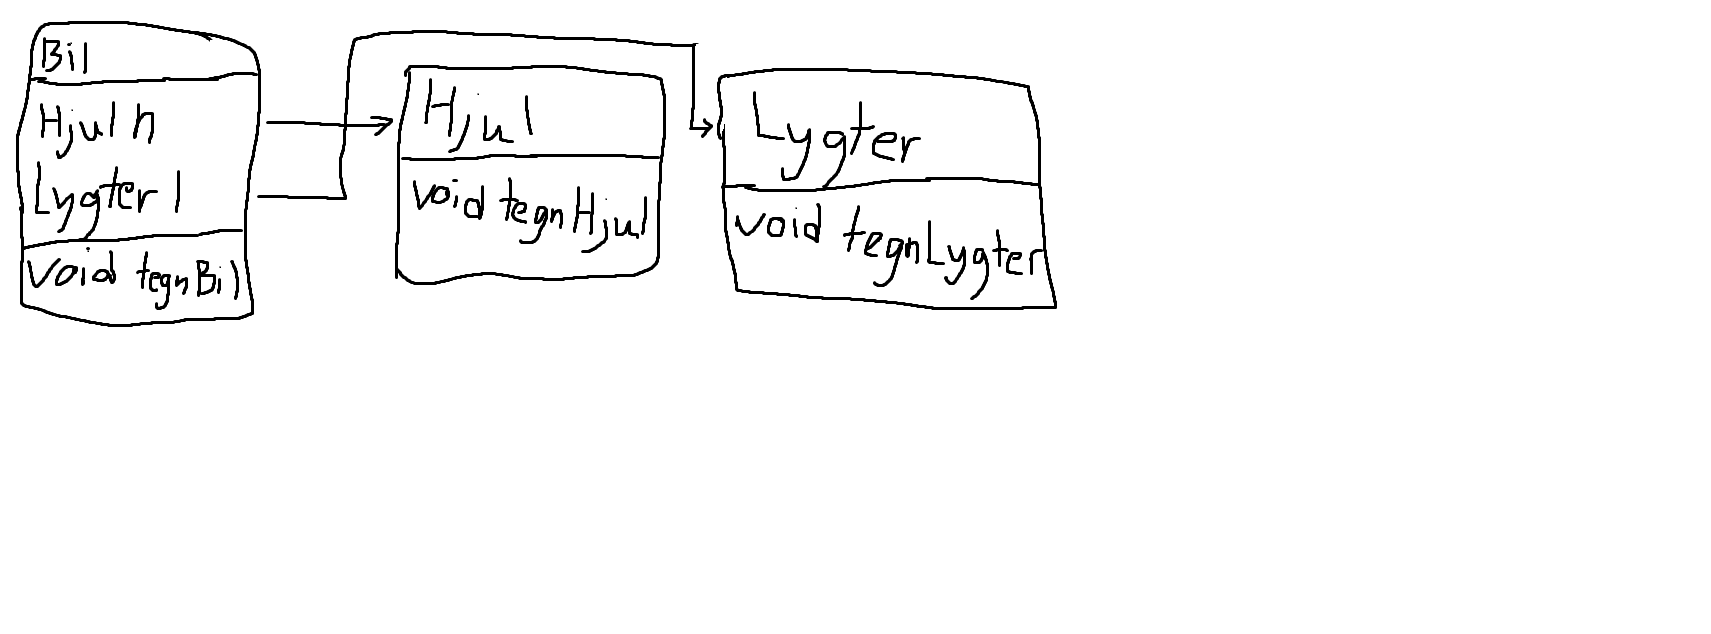 Bil
Hjul h
Lygter l
void tegnBil
Hjul
void tegnHjul
Lygter
void tegnLygter